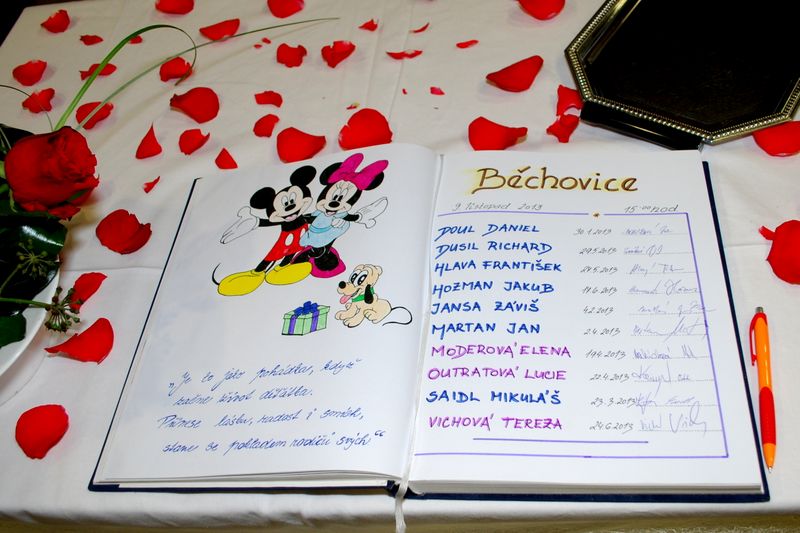 „Je to jako pohádka, když
začne život děťátka.
Přinese lásku, radost i smích,
stane se pokladem rodičů svých“
Běchovice
9. listopad 2013 15:00 hod
DOUL DANIEL 30.1.2013
DUSIL RICHARD 29.5.2013
HLAVA FRANTIŠEK 27.5.2013
HOZMAN JAKUB 11.6.2013
JANSA ZÁVIŠ 4.2.2013
MARTAN JAN 2.4.2013
MODEROVÁ ELENA 19.4.2013
OUTRATOVÁ LUCIE 22.4.2013
SAIDL MIKULÁŠ 23.3.2013
VICHOVÁ TEREZA 24.6.2013